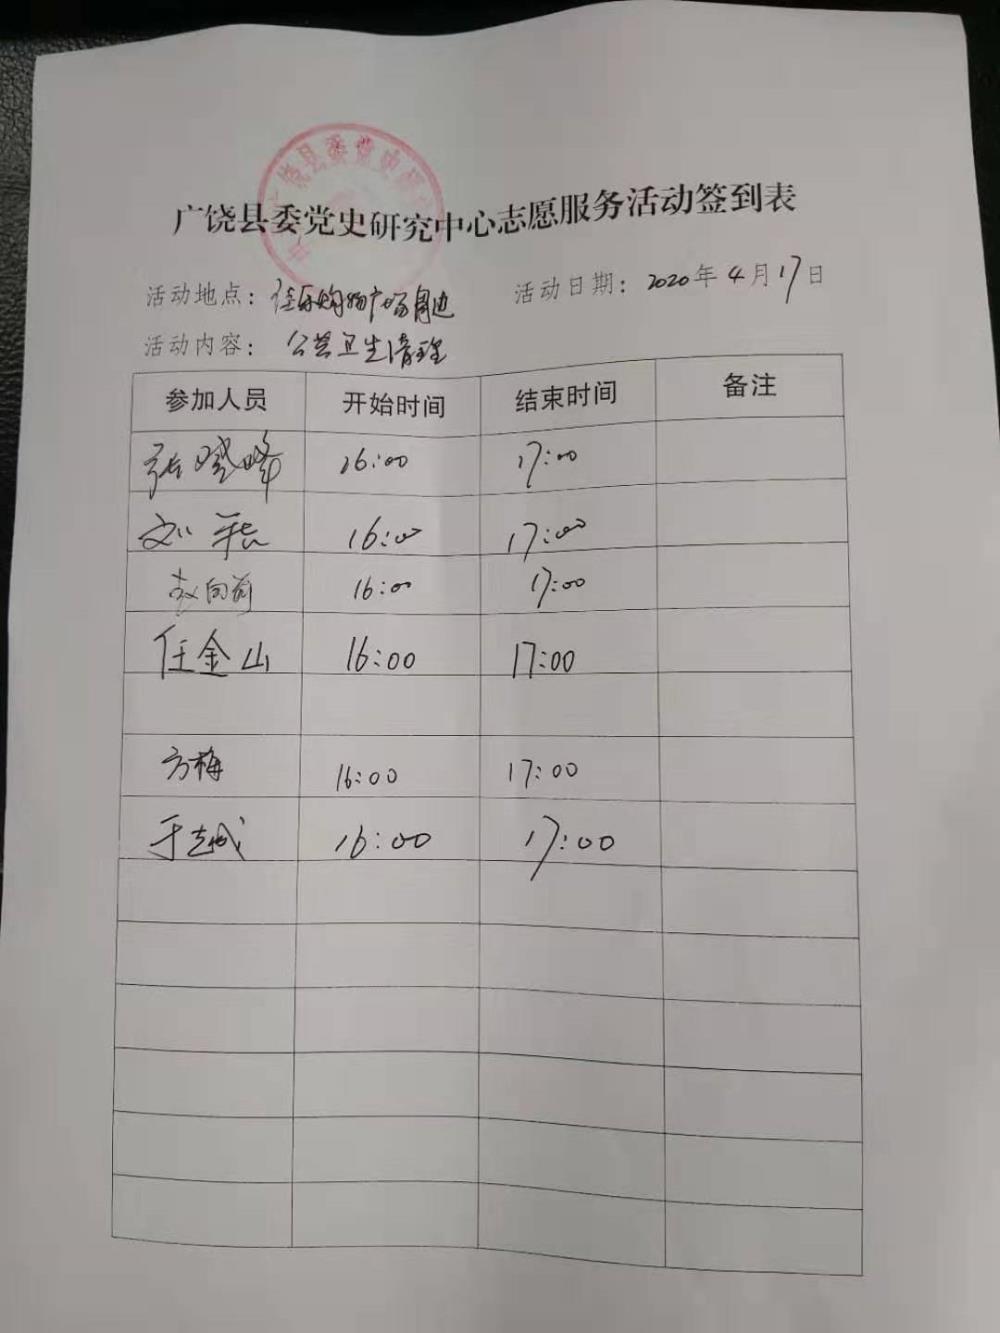 广饶县委党史研究中心志愿服务活动签到表
活动地点：佳乐购物广场周边 活动日期：2020年4月17日
活动内容：公共卫生清理
参加人员 开始时间 结束时间 备注
张晓峰 16:00 17:00
刘 16:00 17:00
赵向前 16:00 17:00
任金山 16:00 17:00
方梅 16:00 17:00
于越成 16:00 17:00